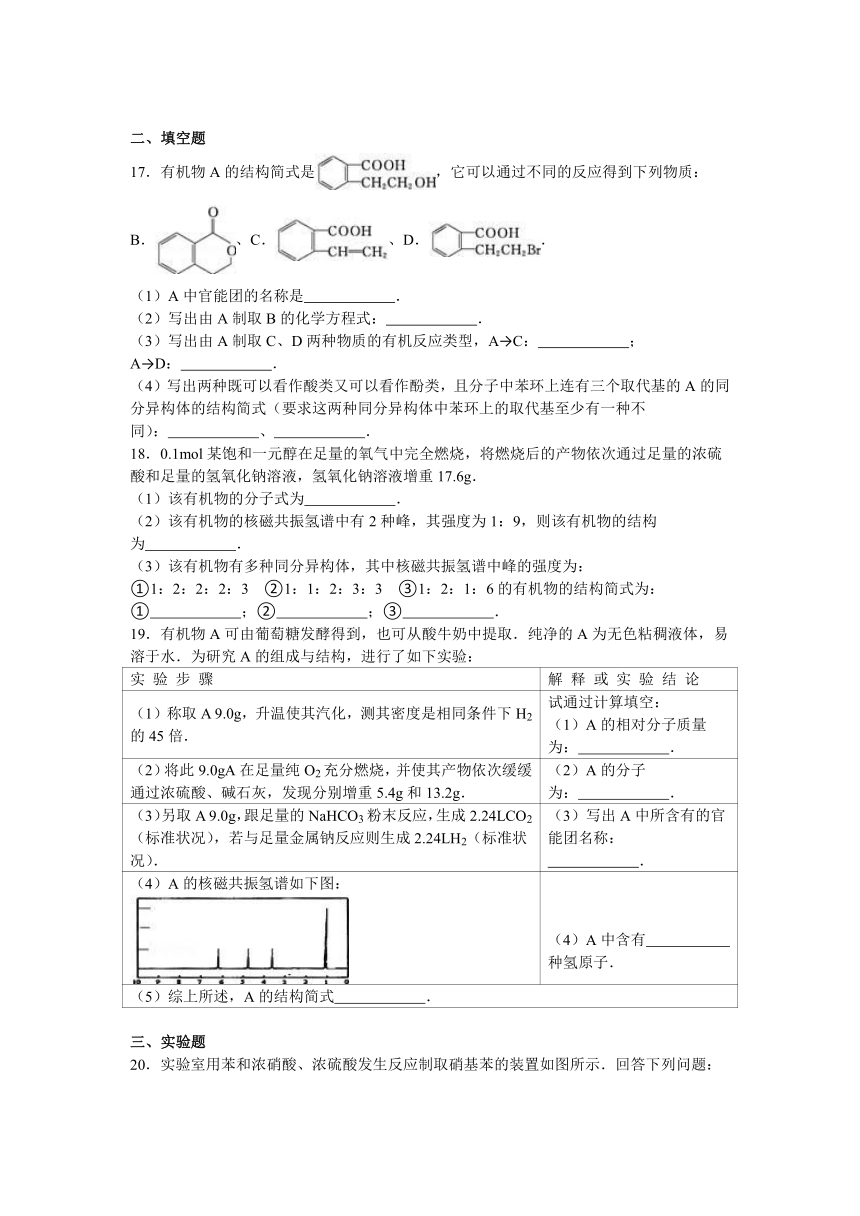 二、填空题
17．有机物 A 的结构简式是 COOH CH₂CH₂OH，它可以通过不同的反应得到下列物质：
B． O O 、C． COOH CH=CH₂ 、D． COOH CH₂CH₂Br ．
（1）A 中官能团的名称是____________．
（2）写出由 A 制取 B 的化学方程式：____________．
（3）写出由 A 制取 C、D 两种物质的有机反应类型，A→C：____________；
A→D：____________．
（4）写出两种既可以看作酸类又可以看作酚类，且分子中苯环上连有三个取代基的 A 的同
分异构体的结构简式（要求这两种同分异构体中苯环上的取代基至少有一种不
同）：____________、____________．
18．0.1mol 某饱和一元醇在足量的氧气中完全燃烧，将燃烧后的产物依次通过足量的浓硫
酸和足量的氢氧化钠溶液，氢氧化钠溶液增重 17.6g．
（1）该有机物的分子式为____________．
（2）该有机物的核磁共振氢谱中有 2 种峰，其强度为 1：9，则该有机物的结构
为____________．
（3）该有机物有多种同分异构体，其中核磁共振氢谱中峰的强度为：
①1：2：2：2：3 ②1：1：2：3：3 ③1：2：1：6 的有机物的结构简式为：
①____________；②____________；③____________．
19．有机物 A 可由葡萄糖发酵得到，也可从酸牛奶中提取．纯净的 A 为无色粘稠液体，易
溶于水．为研究 A 的组成与结构，进行了如下实验：
实 验 步 骤
解 释 或 实 验 结 论
（1）称取 A 9.0g，升温使其汽化，测其密度是相同条件下 H₂
的 45 倍．
试通过计算填空：
（1）A 的相对分子质量
为：____________．
（2）将此 9.0gA 在足量纯 O₂充分燃烧，并使其产物依次缓缓
通过浓硫酸、碱石灰，发现分别增重 5.4g 和 13.2g．
（2）A 的分子
为：____________．
（3）另取 A 9.0g，跟足量的 NaHCO₃粉末反应，生成 2.24LCO₂
（标准状况），若与足量金属钠反应则生成 2.24LH₂（标准状
况）．
（3）写出 A 中所含有的官
能团名称：
____________．
（4）A 的核磁共振氢谱如下图：
10 9 8 7 6 5 4 3 2 1 0
（4）A 中含有____________
种氢原子．
（5）综上所述，A 的结构简式____________．
三、实验题
20．实验室用苯和浓硝酸、浓硫酸发生反应制取硝基苯的装置如图所示．回答下列问题：